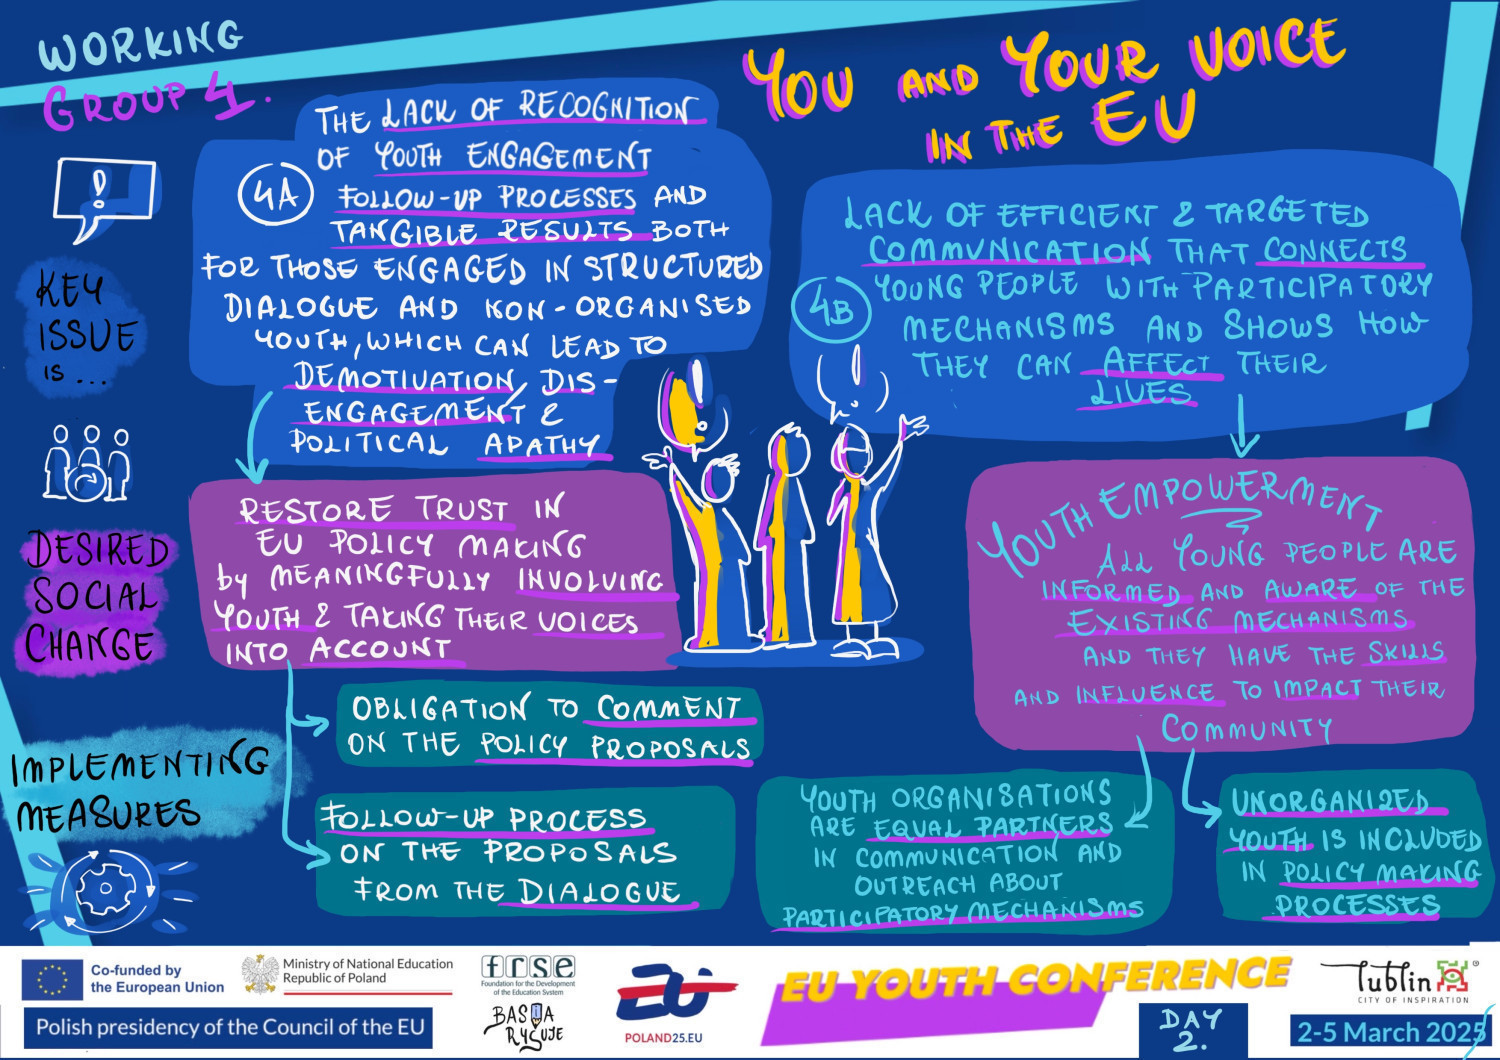 WORKING
GROUP 4.
YOU AND YOUR VOICE
IN THE EU
KEY
ISSUE
IS ...
4A
THE LACK OF RECOGNITION
OF YOUTH ENGAGEMENT
FOLLOW-UP PROCESSES AND
TANGIBLE RESULTS BOTH
FOR THOSE ENGAGED IN STRUCTURED
DIALOGUE AND NON-ORGANISED
YOUTH, WHICH CAN LEAD TO
DEMOTIVATION, DIS-
ENGAGEMENT &
POLITICAL APATHY
4B
LACK OF EFFICIENT & TARGETED
COMMUNICATION THAT CONNECTS
YOUNG PEOPLE WITH PARTICIPATORY
MECHANISMS AND SHOWS HOW
THEY CAN AFFECT THEIR
LIVES
DESIRED
SOCIAL
CHANGE
RESTORE TRUST IN
EU POLICY MAKING
by MEANINGFULLY INVOLVING
YOUTH & TAKING THEIR VOICES
INTO ACCOUNT
YOUTH EMPOWERMENT
ALL YOUNG PEOPLE ARE
INFORMED AND AWARE OF THE
EXISTING MECHANISMS
AND THEY HAVE THE SKILLS
AND INFLUENCE TO IMPACT THEIR
COMMUNITY
IMPLEMENTING
MEASURES
OBLIGATION TO COMMENT
ON THE POLICY PROPOSALS
FOLLOW-UP PROCESS
ON THE PROPOSALS
FROM THE DIALOGUE
YOUTH ORGANISATIONS
ARE EQUAL PARTNERS
IN COMMUNICATION AND
OUTREACH ABOUT
PARTICIPATORY MECHANISMS
UNORGANIZED
YOUTH IS INCLUDED
IN POLICY MAKING
PROCESSES
Co-funded by
the European Union
Ministry of National Education
Republic of Poland
Polish presidency of the Council of the EU
frse
Foundation for the Development
of the Education System
BASIA
RYSUJE
POLAND25.EU
EU YOUTH CONFERENCE
DAY
2.
lublin
CITY OF INSPIRATION
2-5 March 2025